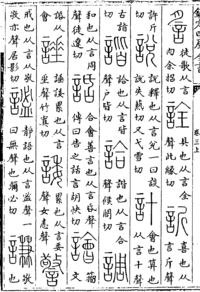 䚻徒歌从言肉余招切詮具也从言全聲此緣切訢喜也从言斤聲
許斤切說說釋也从言兌一曰談說失爇切又弋雪切計會也筭也从言从十
古詣切諧詥也从言皆聲戶皆切詥諧也从言合聲候閤切調
和也从言周聲徒遼切話合會善言也从言𠯑聲傳曰告之話言胡快切譮籒文
話从會諈諈諉纍也从言垂聲竹寘切諉纍也从言委聲女恚切警
戒也从言从敬敬亦聲居影切謐靜語也从言䀌聲一曰無聲也彌必切謙敬也